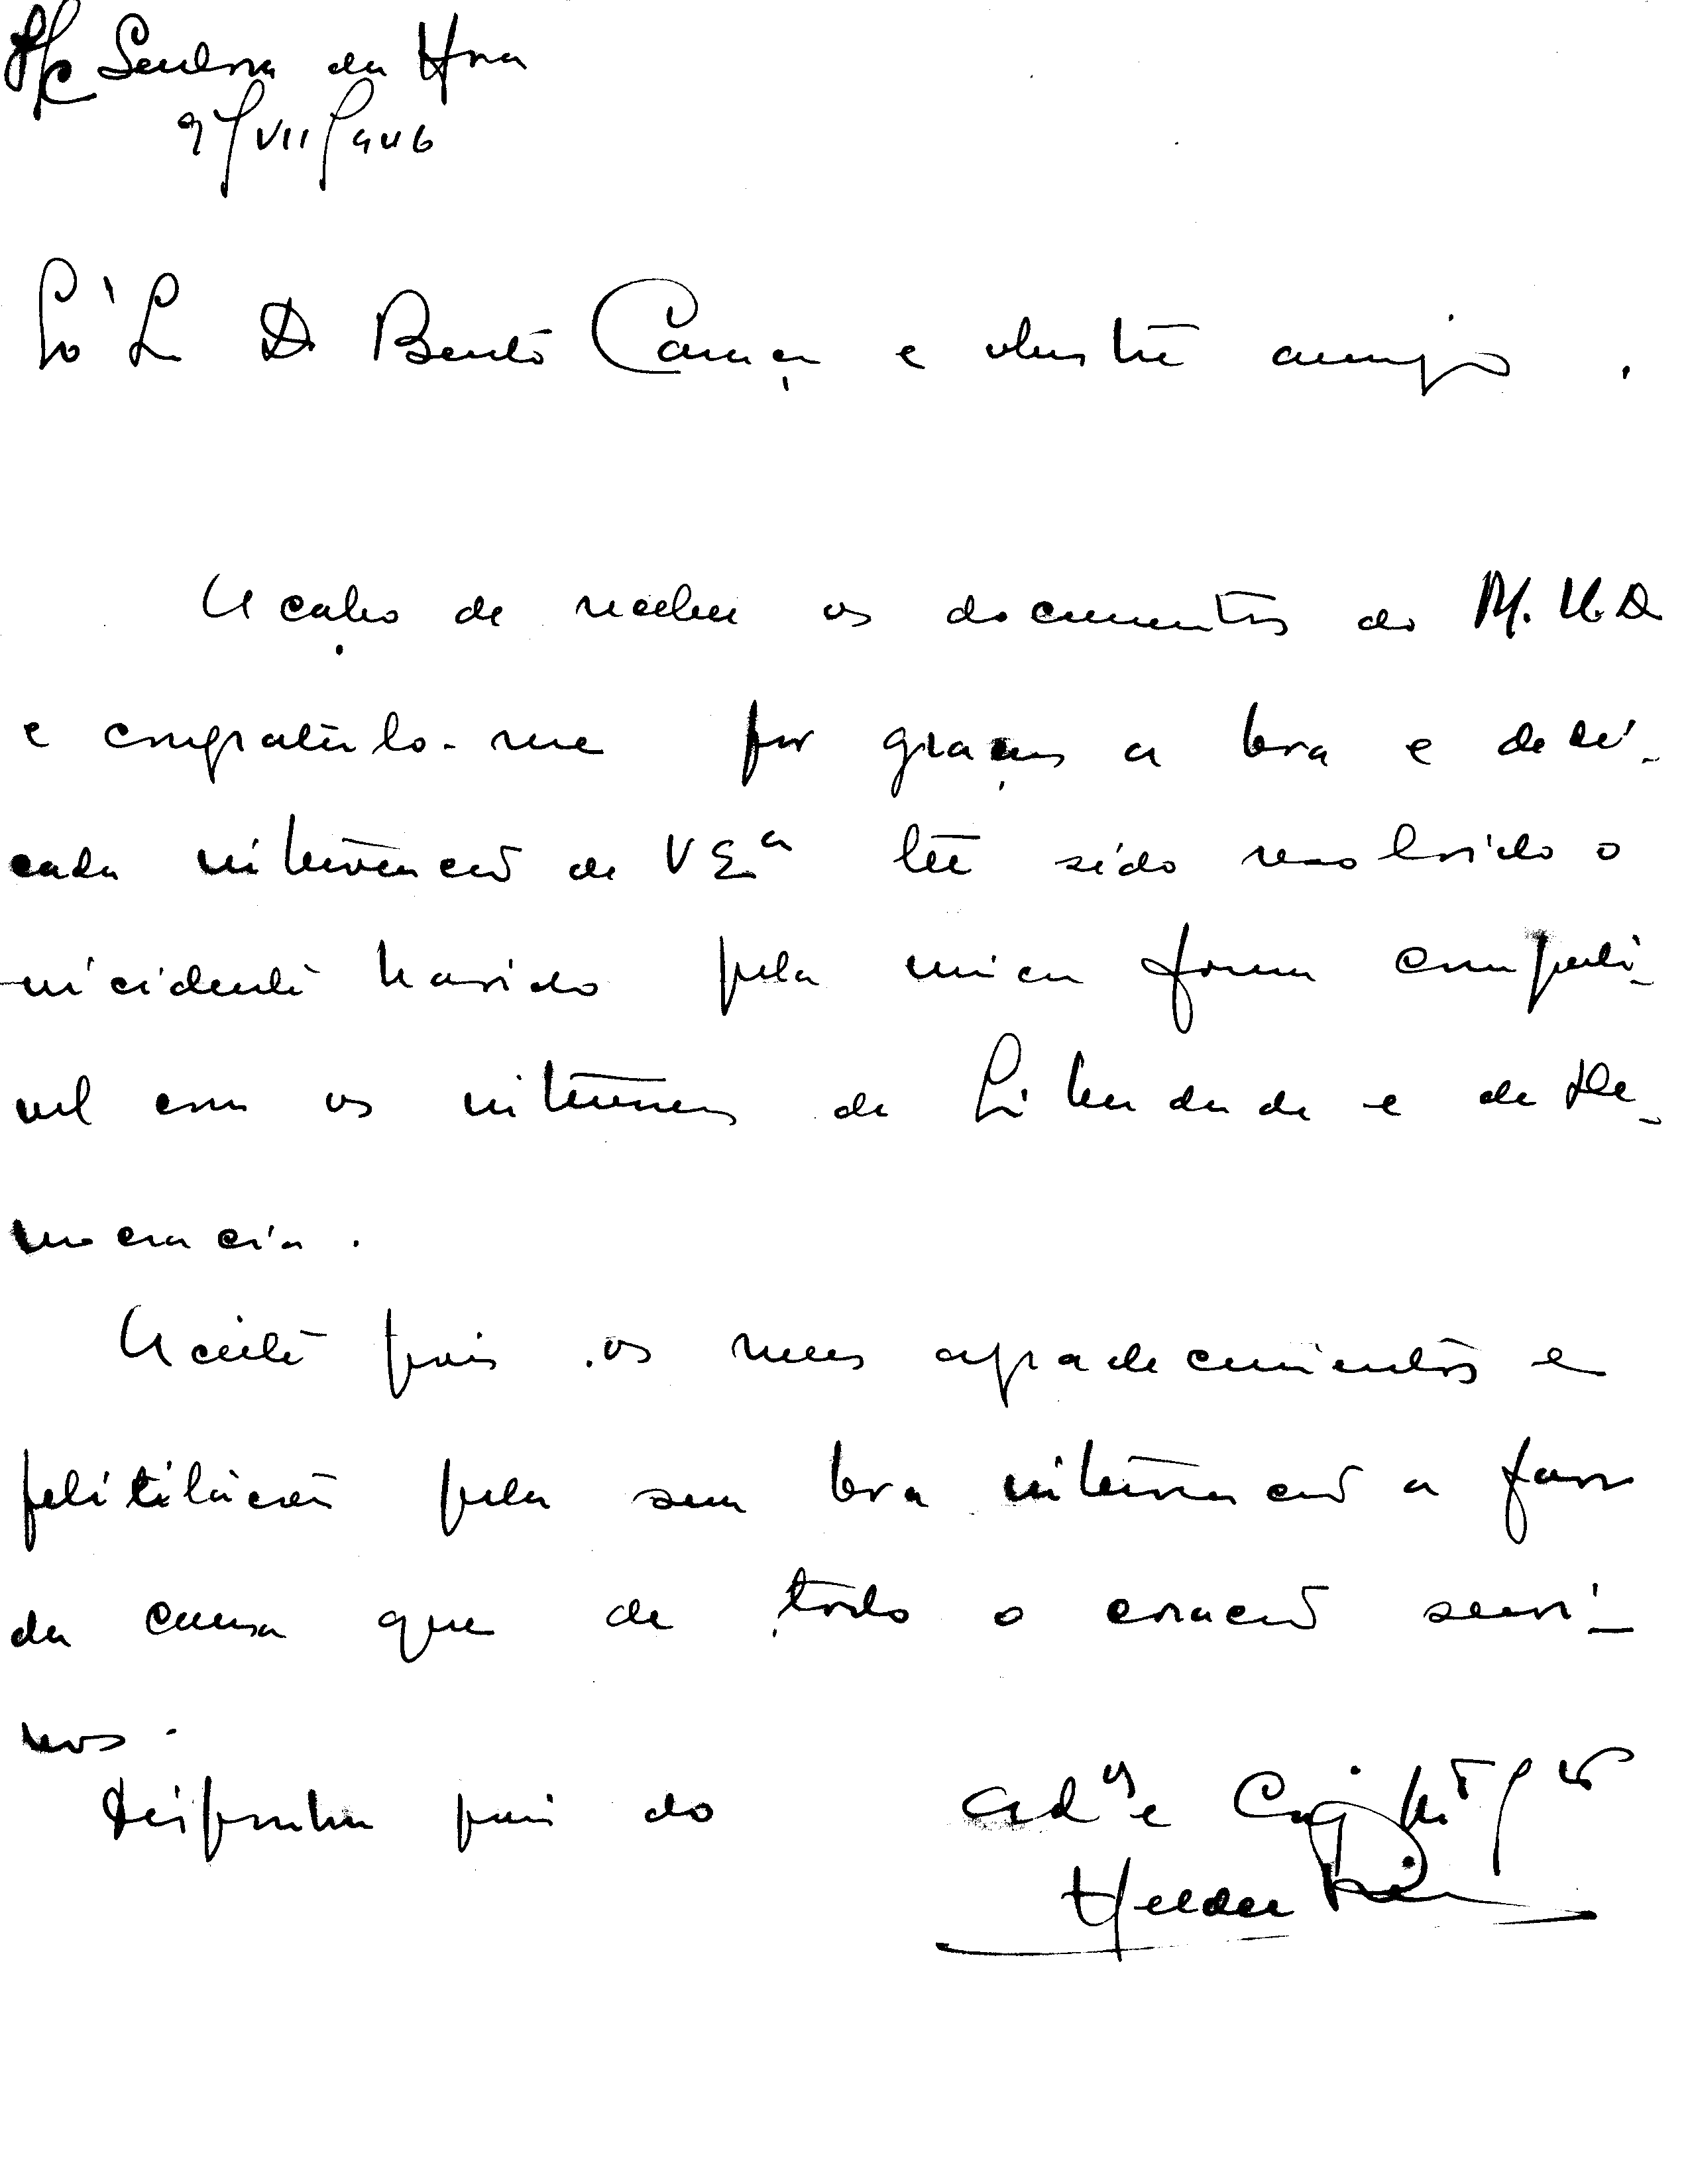 S/c Senhora da Hora
9/VII/946
Dr Bento Caraça e ilustre amigo.
Acabo de receber os documentos do M.U.D
e congratulo-me por graças a boa e dedi-
cada intervenção de V Exa ter sido resolvido o
incidente havido pela unica forma compati-
vel com os interesses de Liberdade e da De-
mocracia.
Aceite pois os meus agradecimentos e
felicitações pela sua boa intervenção a favor
da causa que de todo o coração servi-
mos.
Disponha pois do
Helder